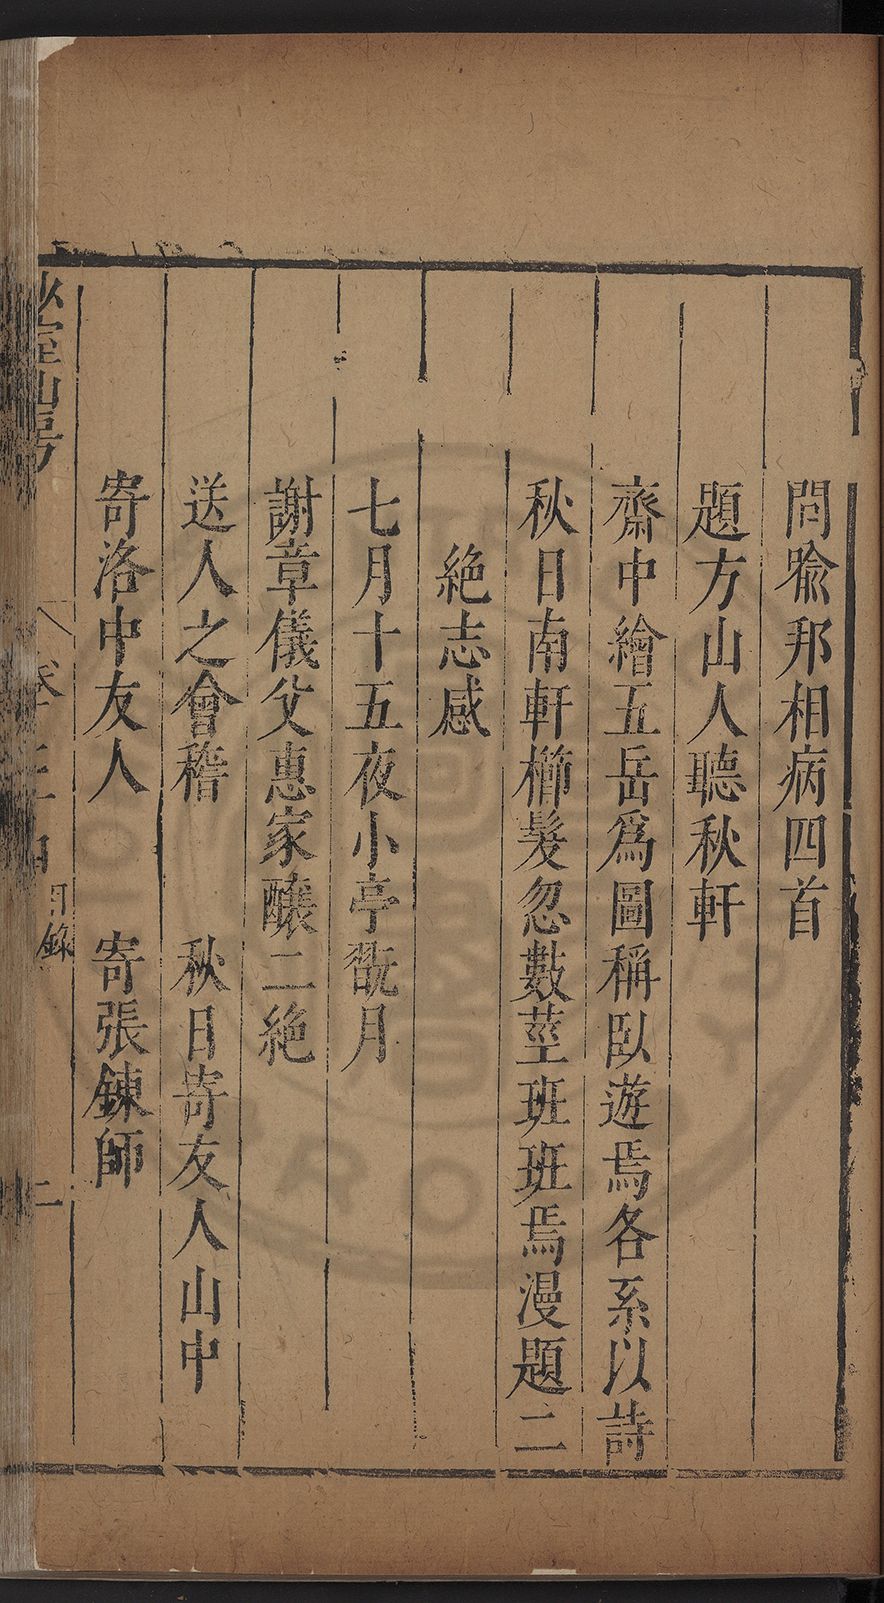 問喩邦相病四首
題方山人聽秋軒
齋中繪五岳爲圖稱臥遊焉各系以詩
秋日南軒櫛髮忽數莖班班焉漫題二
絶志感
七月十五夜小亭翫月
謝章儀父惠家釀二絶
送人之會稽　秋日寄友人山中
寄洛中友人　寄張鍊師
山房
目錄
二